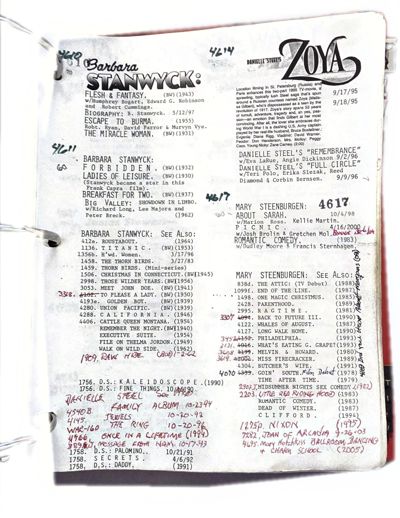 4610
Barbara
STANWYCK:
FLESH & FANTASY. (BW)(1943)
w/Humphrey Bogart, Edward G. Robinson
and Robert Cummings.
BIOGRAPHY: B. Stanwyck. 5/12/97
ESCAPE TO BURMA. (1955)
Robt. Ryan, David Farror & Murvyn Vye.
THE MIRACLE WOMAN. (BW)(1931)
4611
BARBARA STANWYCK:
60- FORBIDDEN (BW)(1932)
LADIES OF LEISURE. (BW)(1930)
(Stanwyck became a star in this
Frank Capra film).
BREAKFAST FOR TWO. (BW)(1937)
BIG VALLEY: SHOWDOWN IN LIMBO.
w/Richard Long, Lee Majors and
Peter Breck. (1962)
BARBARA STANWYCK: SEE ALSO:
412a. ROUSTABOUT. (1964)
1136. TITANIC. (BW)(1953)
1356b. B'wd. Women. 3/17/96
1458. THE THORN BIRDS. (3/27/83
1459. THORN BIRDS. (Mini-series)
1506. CHRISTMAS IN CONNECTICUT.(BW1945)
2998. THOSE WILDER YEARS.(BW)1956)
3053. MEET JOHN DOE. (BW)(1941)
TO PLEASE A LADY. (BW)(1950)
4193a. GOLDEN BOY. (BW)(1939)
4280. UNION PACIFIC. (BW)(1939)
4288. CALIFORNIA. (1946)
4406. CATTLE QUEEN MONTANA. (1954)
REMEMBER THE NIGHT.(BW)1940)
EXECUTIVE SUITE (BW)1954)
FILE ON THELMA JORDON.(1949)
WALK ON WILD SIDE. (1962)
1909, RAW HIDE
1756. D.S.: KALEIDOSCOPE.(1990)
1756. D.S.: FINE THINGS.
DANIELLE STEEL
4540B. FAMILY ALBUM 10-23-94
4145. JEWELS 10-20-92
WAR-160 THE RING 10-20-96
4966 ONCE IN A LIFETIME (1994)
MESSAGE FROM NAM. 10-17-93
1758. D.S.: PALOMINO.. 10/21/91
1758. SECRETS. 4/6/92
1758. D.S.: DADDY. (1991)
4614
DANIELLE STEEL'S
ZOYA
9/17/95
9/18/95
DANIELLE STEEL'S "REMEMBRANCE"
w/Eva LaRue, Angie Dickinson 9/2/96
DANIELLE STEEL'S "FULL CIRCLE"
w/Teri Polo, Erika Slezak, Reed
Diamond & Corbin Bernsen. 9/9/96
4617
MARY STEENBURGEN: 4617
60- ABOUT SARAH. 10/4/98
w/Marion Ross. Kellie Martin.
PICNIC. 4/16/2000
w/Josh Brolin & Gretchen Mol.
ROMANTIC COMEDY. (1983)
w/Dudley Moore & Francis Sternhagen.
MARY STEENBURGEN: SEE ALSO:
838d. THE ATTIC (TV Debut) (1988)
1099i. END OF THE LINE. (1987)
2428. PARENTHOOD. (1989)
2995. RAGTIME. (1981)
BACK TO FUTURE III. (1990)
4122. WHALES OF AUGUST. (1987)
4127. LONG WALK HOME. (1990)
PHILADELPHIA. (1993)
WHAT'S EATING G. GRAPE?(1993)
MELVIN & HOWARD. (1980)
MISS FIRECRACKER. (1989)
4304. BUTCHER'S WIFE. (1991)
4070 GOIN' SOUTH. Film Debut (1978)
TIME AFTER TIME. (1979)
MIDSUMMER NIGHTS SEX COMEDY.(1982)
2203. LITTLE RED RIDING HOOD (1983)
ROMANTIC COMEDY. (1983)
DEAD OF WINTER. (1987)
CLIFFORD. (1994)
1275P. NIXON (1995)
7282, JOAN OF ARCADIA 9-26-03
4695. MARY HOTCHKISS BALLROOM DANCING
& CHARM SCHOOL (2005)